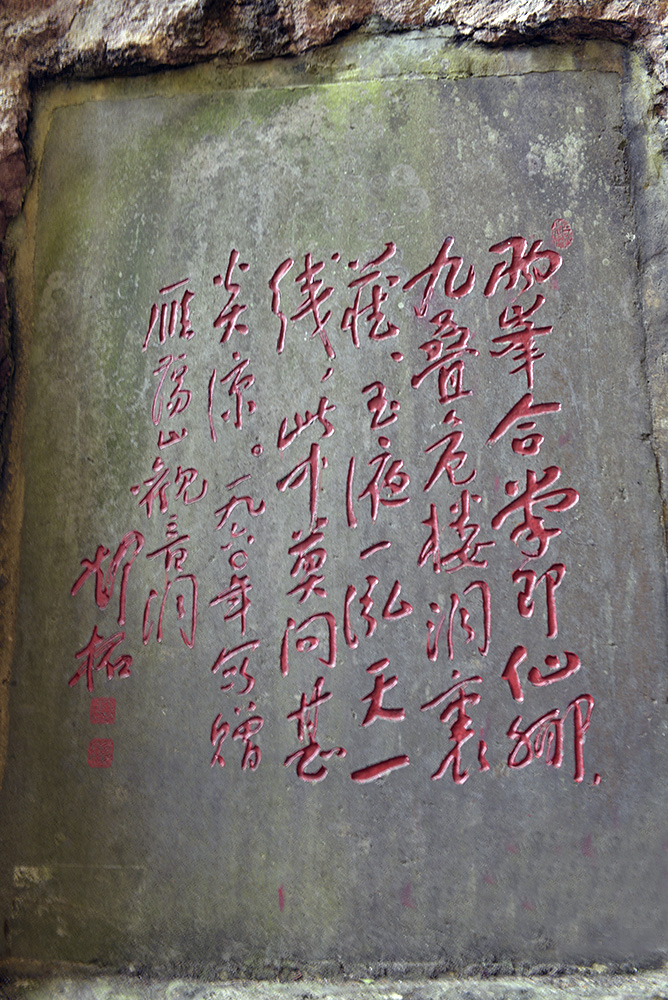 两峯合掌即仙鄉,
九叠危楼洞裏
藏、玉液一泓天一
线,此中莫问甚
炎凉。一九六〇年写赠
雁荡山观音洞
邓拓